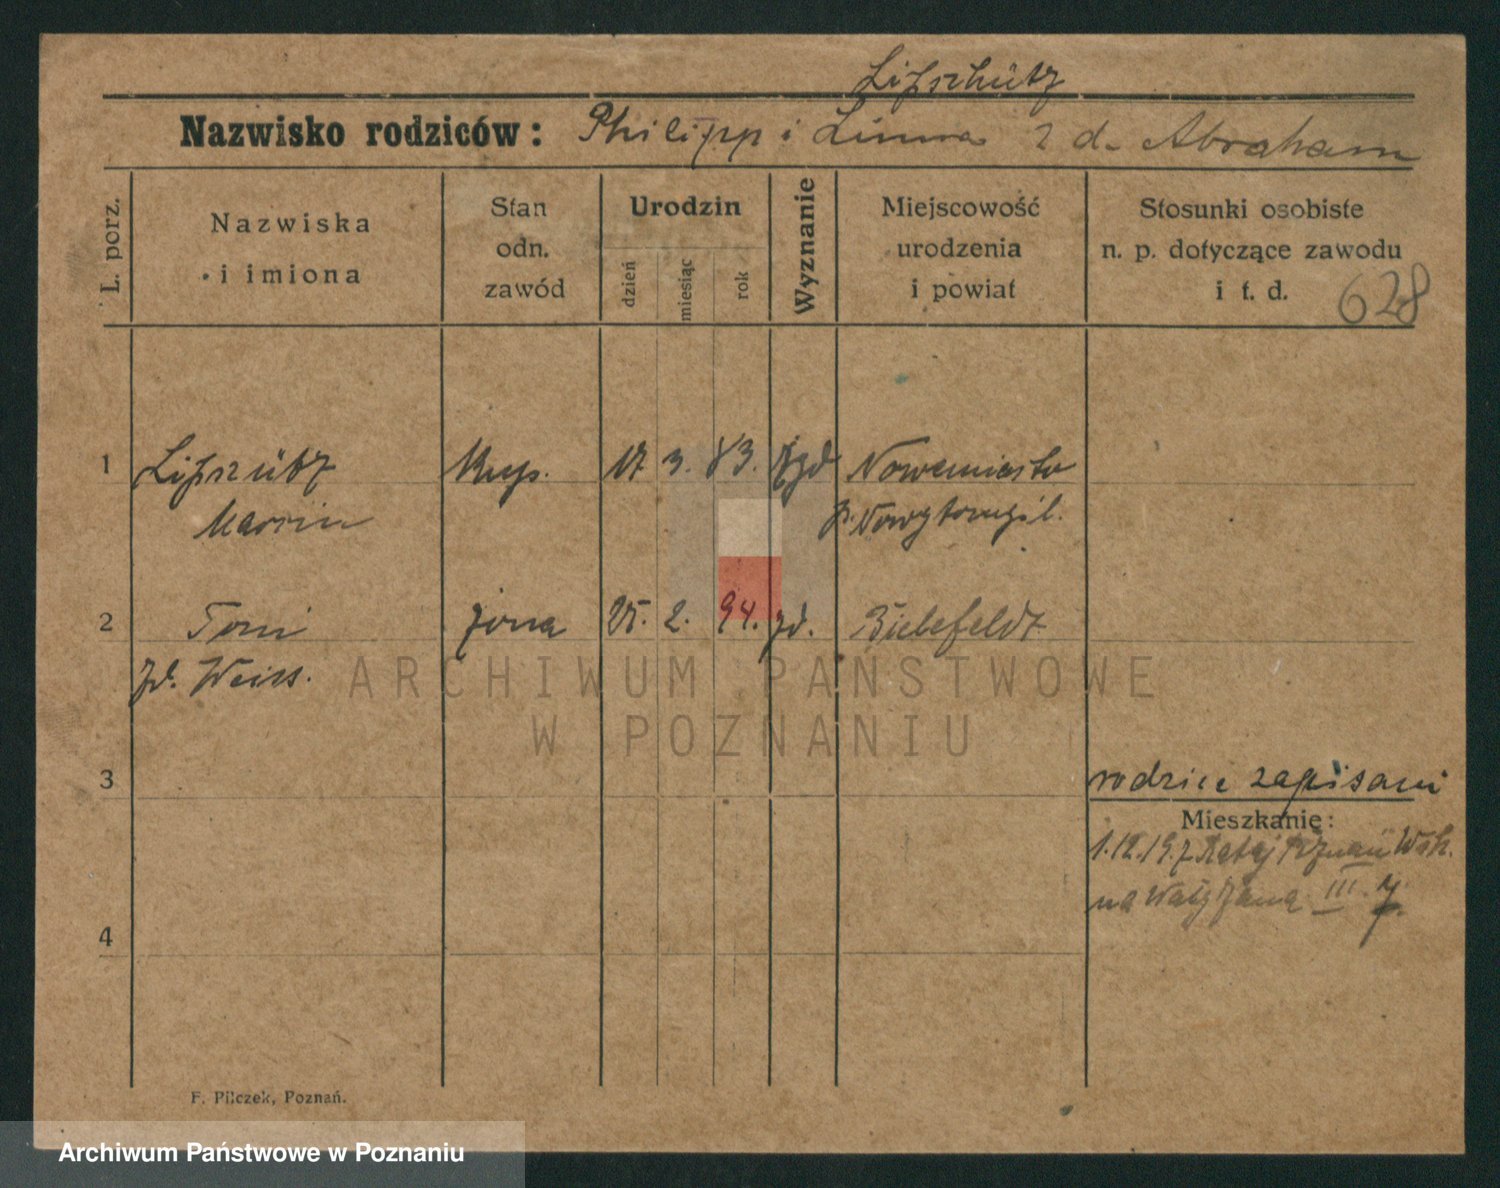 Lipschütz
Nazwisko rodziców: Philipp i Linna z d. Abraham
L. porz.
Nazwiska
i imiona
Stan
odn.
zawód
Urodzin
dzień
miesiąc
rok
Wyznanie
Miejscowość
urodzenia
i powiat
Stosunki osobiste
n. p. dotyczące zawodu
i t. d.
628
1 Lipszütz Kup. 17 3. 83. żyd Nowemiasto
Marcin p.
2 Toni żona 25. 2. 94. żd. Bielefeldt
zd. Weiss.
ARCHIWUM PAŃSTWOWE
W POZNANIU
3
rodzice zapisani
Mieszkanie:
1.12.19. z Poznań
na III. 7.
4
F. Pilczek, Poznań.
Archiwum Państwowe w Poznaniu